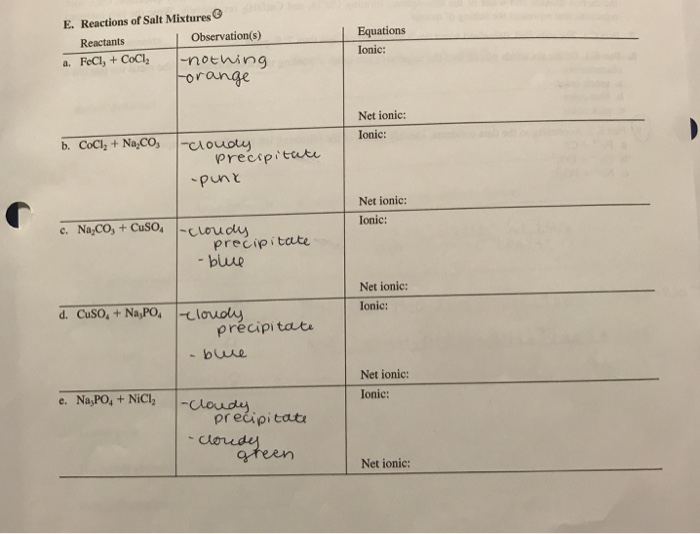 E. Reactions of Salt Mixtures
Reactants Observation(s) Equations
a. FeCl₃ + CoCl₂ -nothing Ionic:
-orange
Net ionic:
b. CoCl₂ + Na₂CO₃ -cloudy Ionic:
precipitate
-pink
Net ionic:
c. Na₂CO₃ + CuSO₄ -cloudy Ionic:
precipitate
-blue
Net ionic:
d. CuSO₄ + Na₃PO₄ -cloudy Ionic:
precipitate
-blue
Net ionic:
e. Na₃PO₄ + NiCl₂ -cloudy Ionic:
precipitate
-cloudy
green
Net ionic: